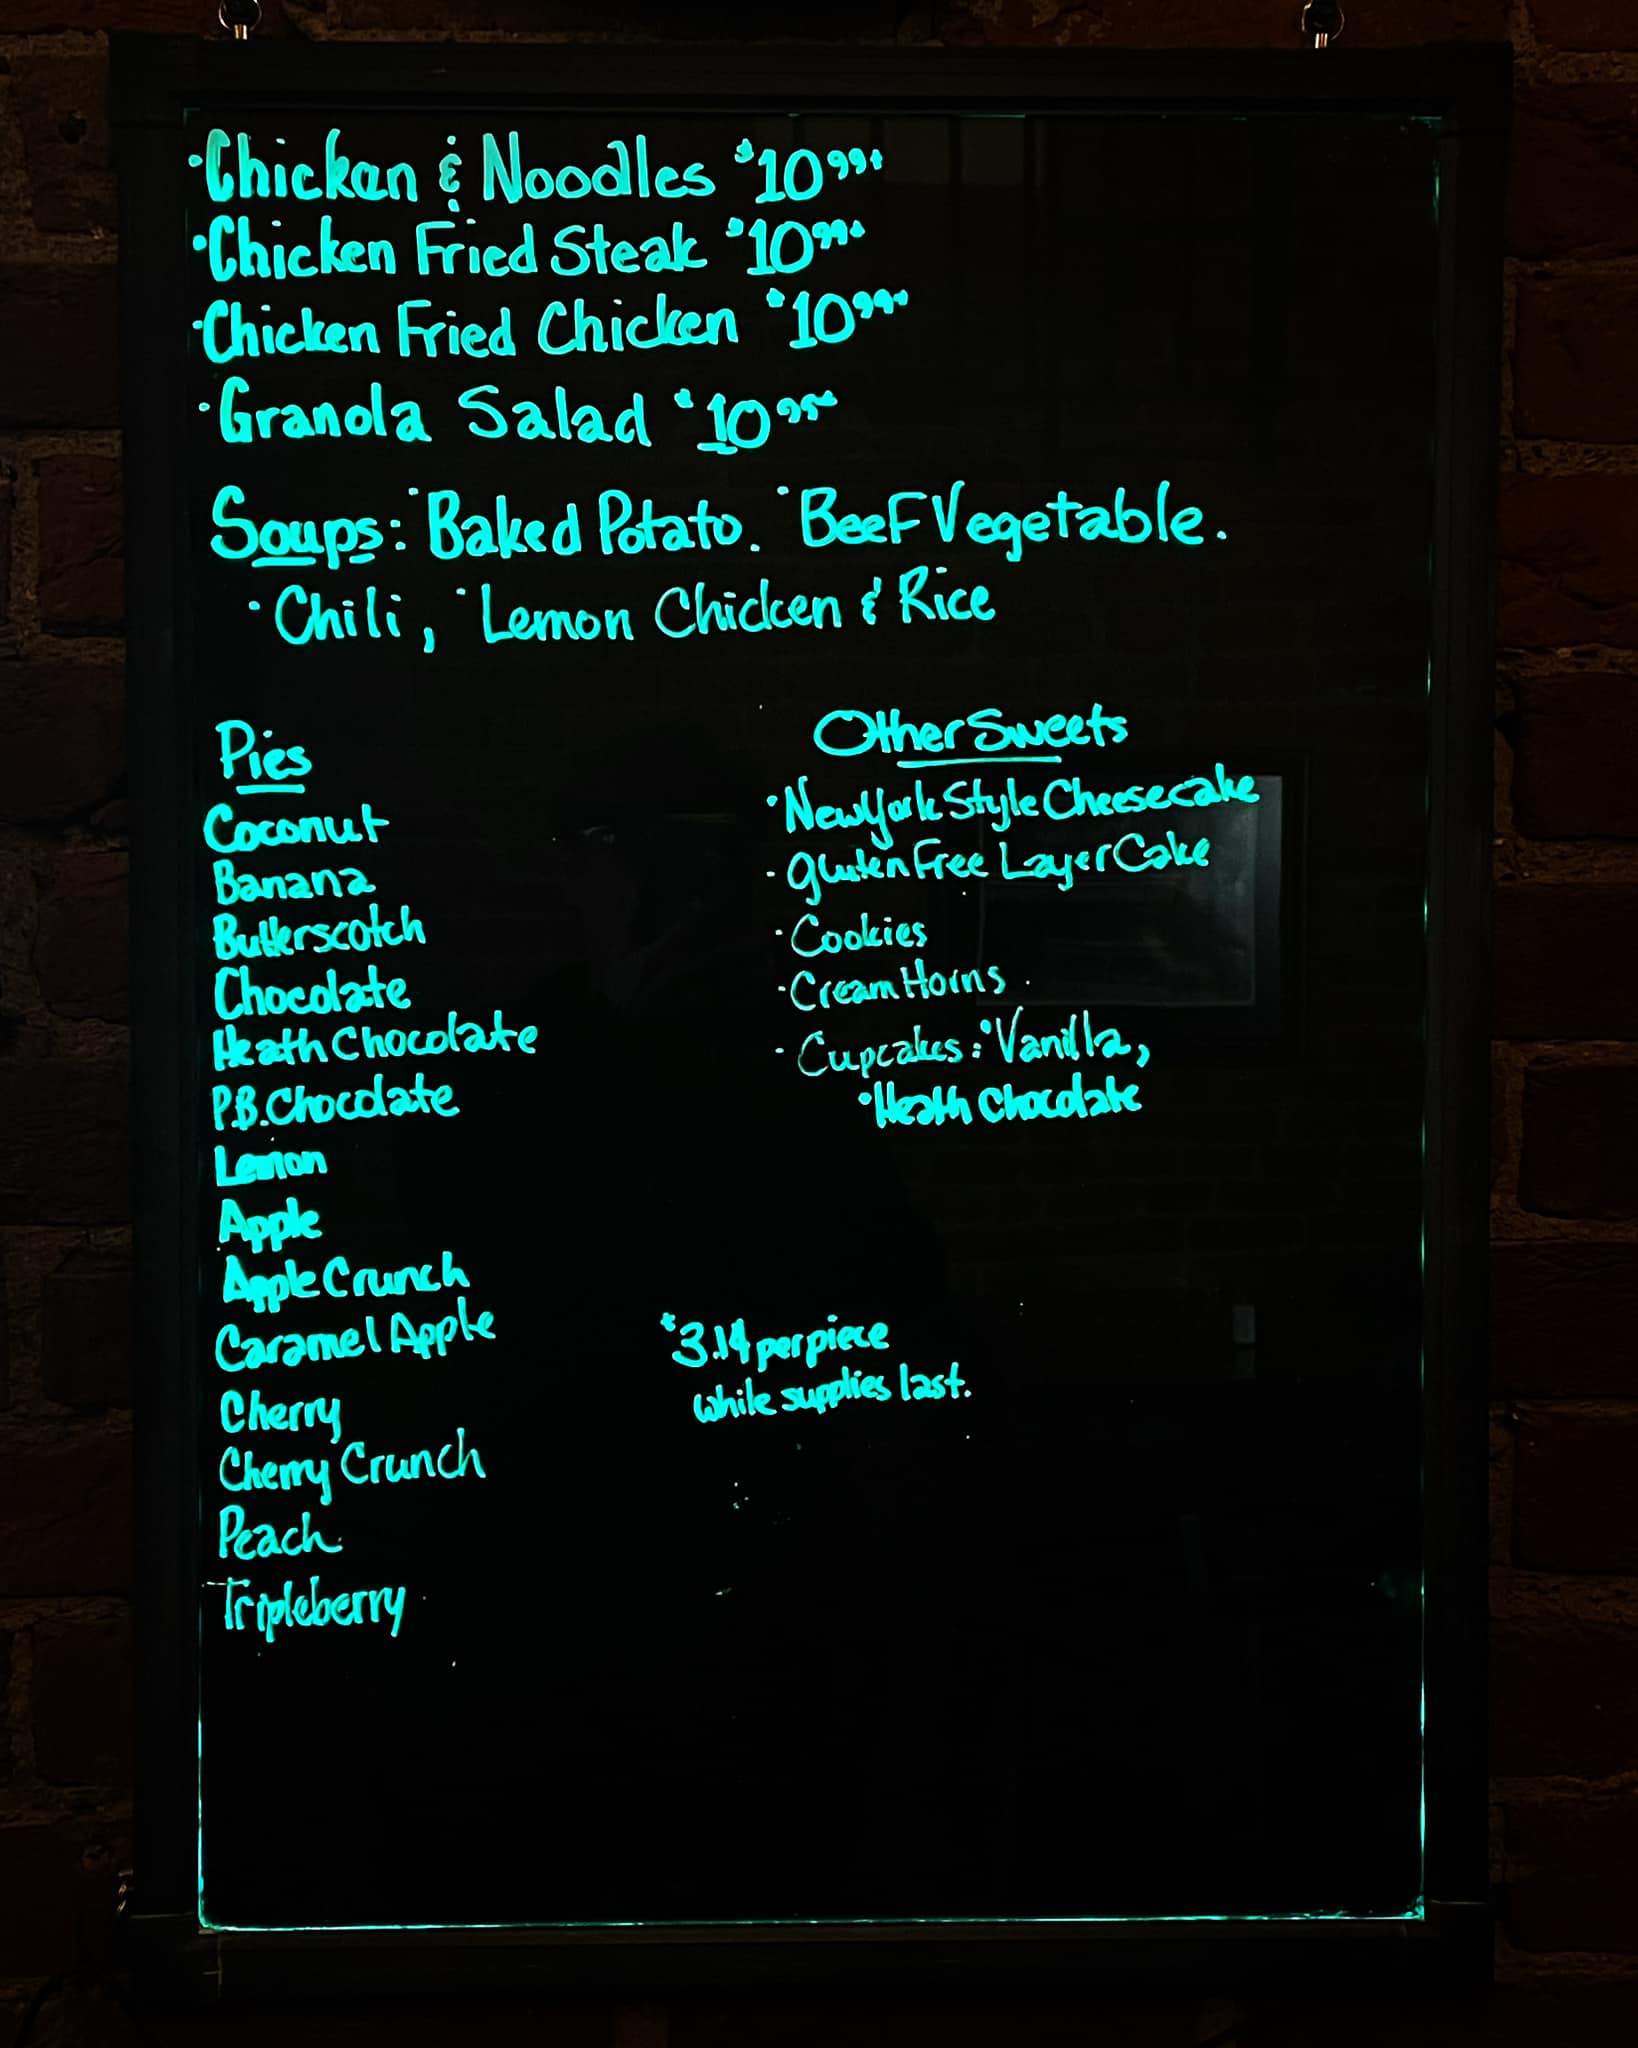 ·Chicken & Noodles $10.99+
·Chicken Fried Steak $10.99+
·Chicken Fried Chicken $10.99+
·Granola Salad $10.95+
Soups: ·Baked Potato. ·Beef Vegetable.
·Chili, ·Lemon Chicken & Rice
Pies
Coconut
Banana
Butterscotch
Chocolate
Heath Chocolate
P.B. Chocolate
Lemon
Apple
Apple Crunch
Caramel Apple
Cherry
Cherry Crunch
Peach
Tripleberry
Other Sweets
·New York Style Cheesecake
·Gluten Free Layer Cake
·Cookies
·Cream Horns
·Cupcakes: ·Vanilla,
·Heath Chocolate
$3.14 per piece
while supplies last.